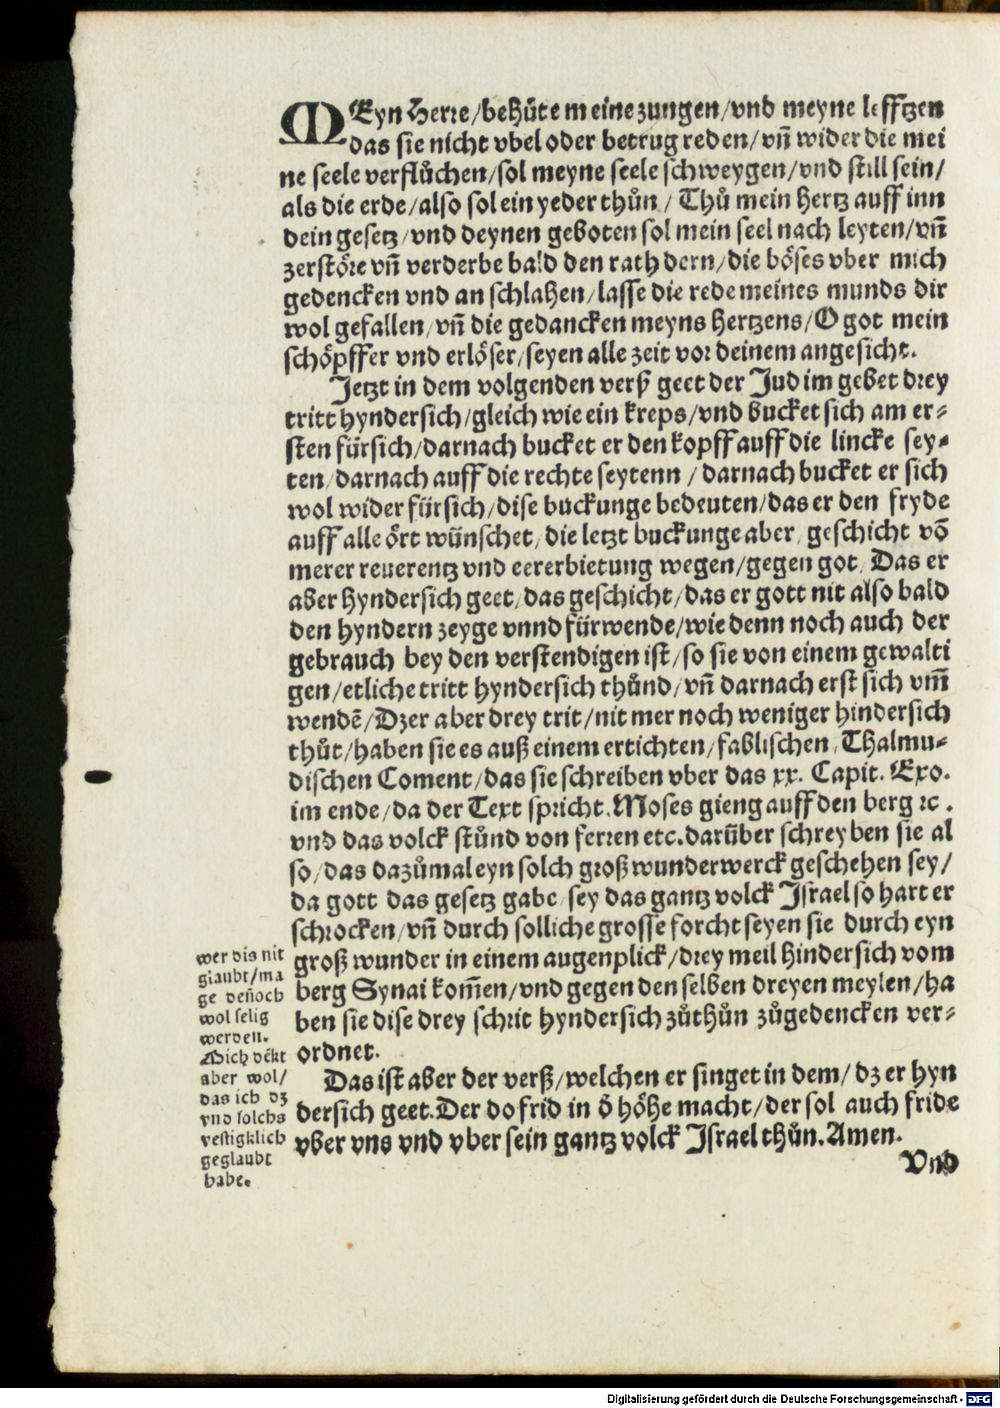 MEyn Herre/behůte meine zungen/vnd meyne lefftzen
das sie nicht vbel oder betrug reden/vñ wider die mei
ne seele verflůchen/sol meyne seele schweygen/vnd still sein/
als die erde/also sol ein yeder thůn/Thů mein hertz auff inn
dein gesetz/vnd deynen geboten sol mein seel nach leyten/vñ
zerstöre vñ verderbe bald den rath dern/die böses vber mich
gedencken vnd an schlahen/lasse die rede meines munds dir
wol gefallen/vñ die gedancken meyns hertzens/O got mein
schöpffer vnd erlöser/seyen alle zeit vor deinem angesicht.
Jetzt in dem volgenden verß geet der Jud im gebet drey
tritt hyndersich/gleich wie ein kreps/vnd bucket sich am er-
sten fürsich/darnach bucket er den kopff auff die lincke sey-
ten/darnach auff die rechte seytenn/darnach bucket er sich
wol wider fürsich/dise buckunge bedeuten/das er den fryde
auff alle ört wünschet/die letzt buckunge aber/geschicht võ
merer reuerentz vnd eererbietung wegen/gegen got/Das er
aber hyndersich geet/das geschicht/das er gott nit also bald
den hyndern zeyge vnnd fürwende/wie denn noch auch der
gebrauch bey den verstendigen ist/so sie von einem gewalti
gen/etliche tritt hyndersich thůnd/vñ darnach erst sich vm̃
wendẽ/Dz er aber drey trit/nit mer noch weniger hindersich
thůt/haben sie es auß einem ertichten/fablischen/Thalmu-
dischen Coment/das sie schreiben vber das xx. Capit. Exo.
im ende/da der Text spricht. Moses gieng auff den berg ꝛc.
vnd das volck stůnd von ferren etc. darüber schreyben sie al
so/das dazůmal eyn solch groß wunderwerck geschehen sey/
da gott das gesetz gabe/sey das gantz volck Israel so hart er
schrocken/vñ durch solliche grosse forcht seyen sie durch eyn
groß wunder in einem augenplick/drey meil hindersich vom
berg Synai kom̃en/vnd gegen den selben dreyen meylen/ha
ben sie dise drey schrit hyndersich zůthůn zůgedencken ver-
ordnet.
Das ist aber der verß/welchen er singet in dem/dz er hyn
dersich geet. Der do frid in ð höhe macht/der sol auch fride
vber vns vnd vber sein gantz volck Israel thůn. Amen.
Vnd
wer dis nit
glaubt/ma
ge deñoch
wol selig
werden.
Mich dẽkt
aber wol/
das ich dz
vnd solchs
vestigklich
geglaubt
habe.
Digitalisierung gefördert durch die Deutsche Forschungsgemeinschaft - DFG